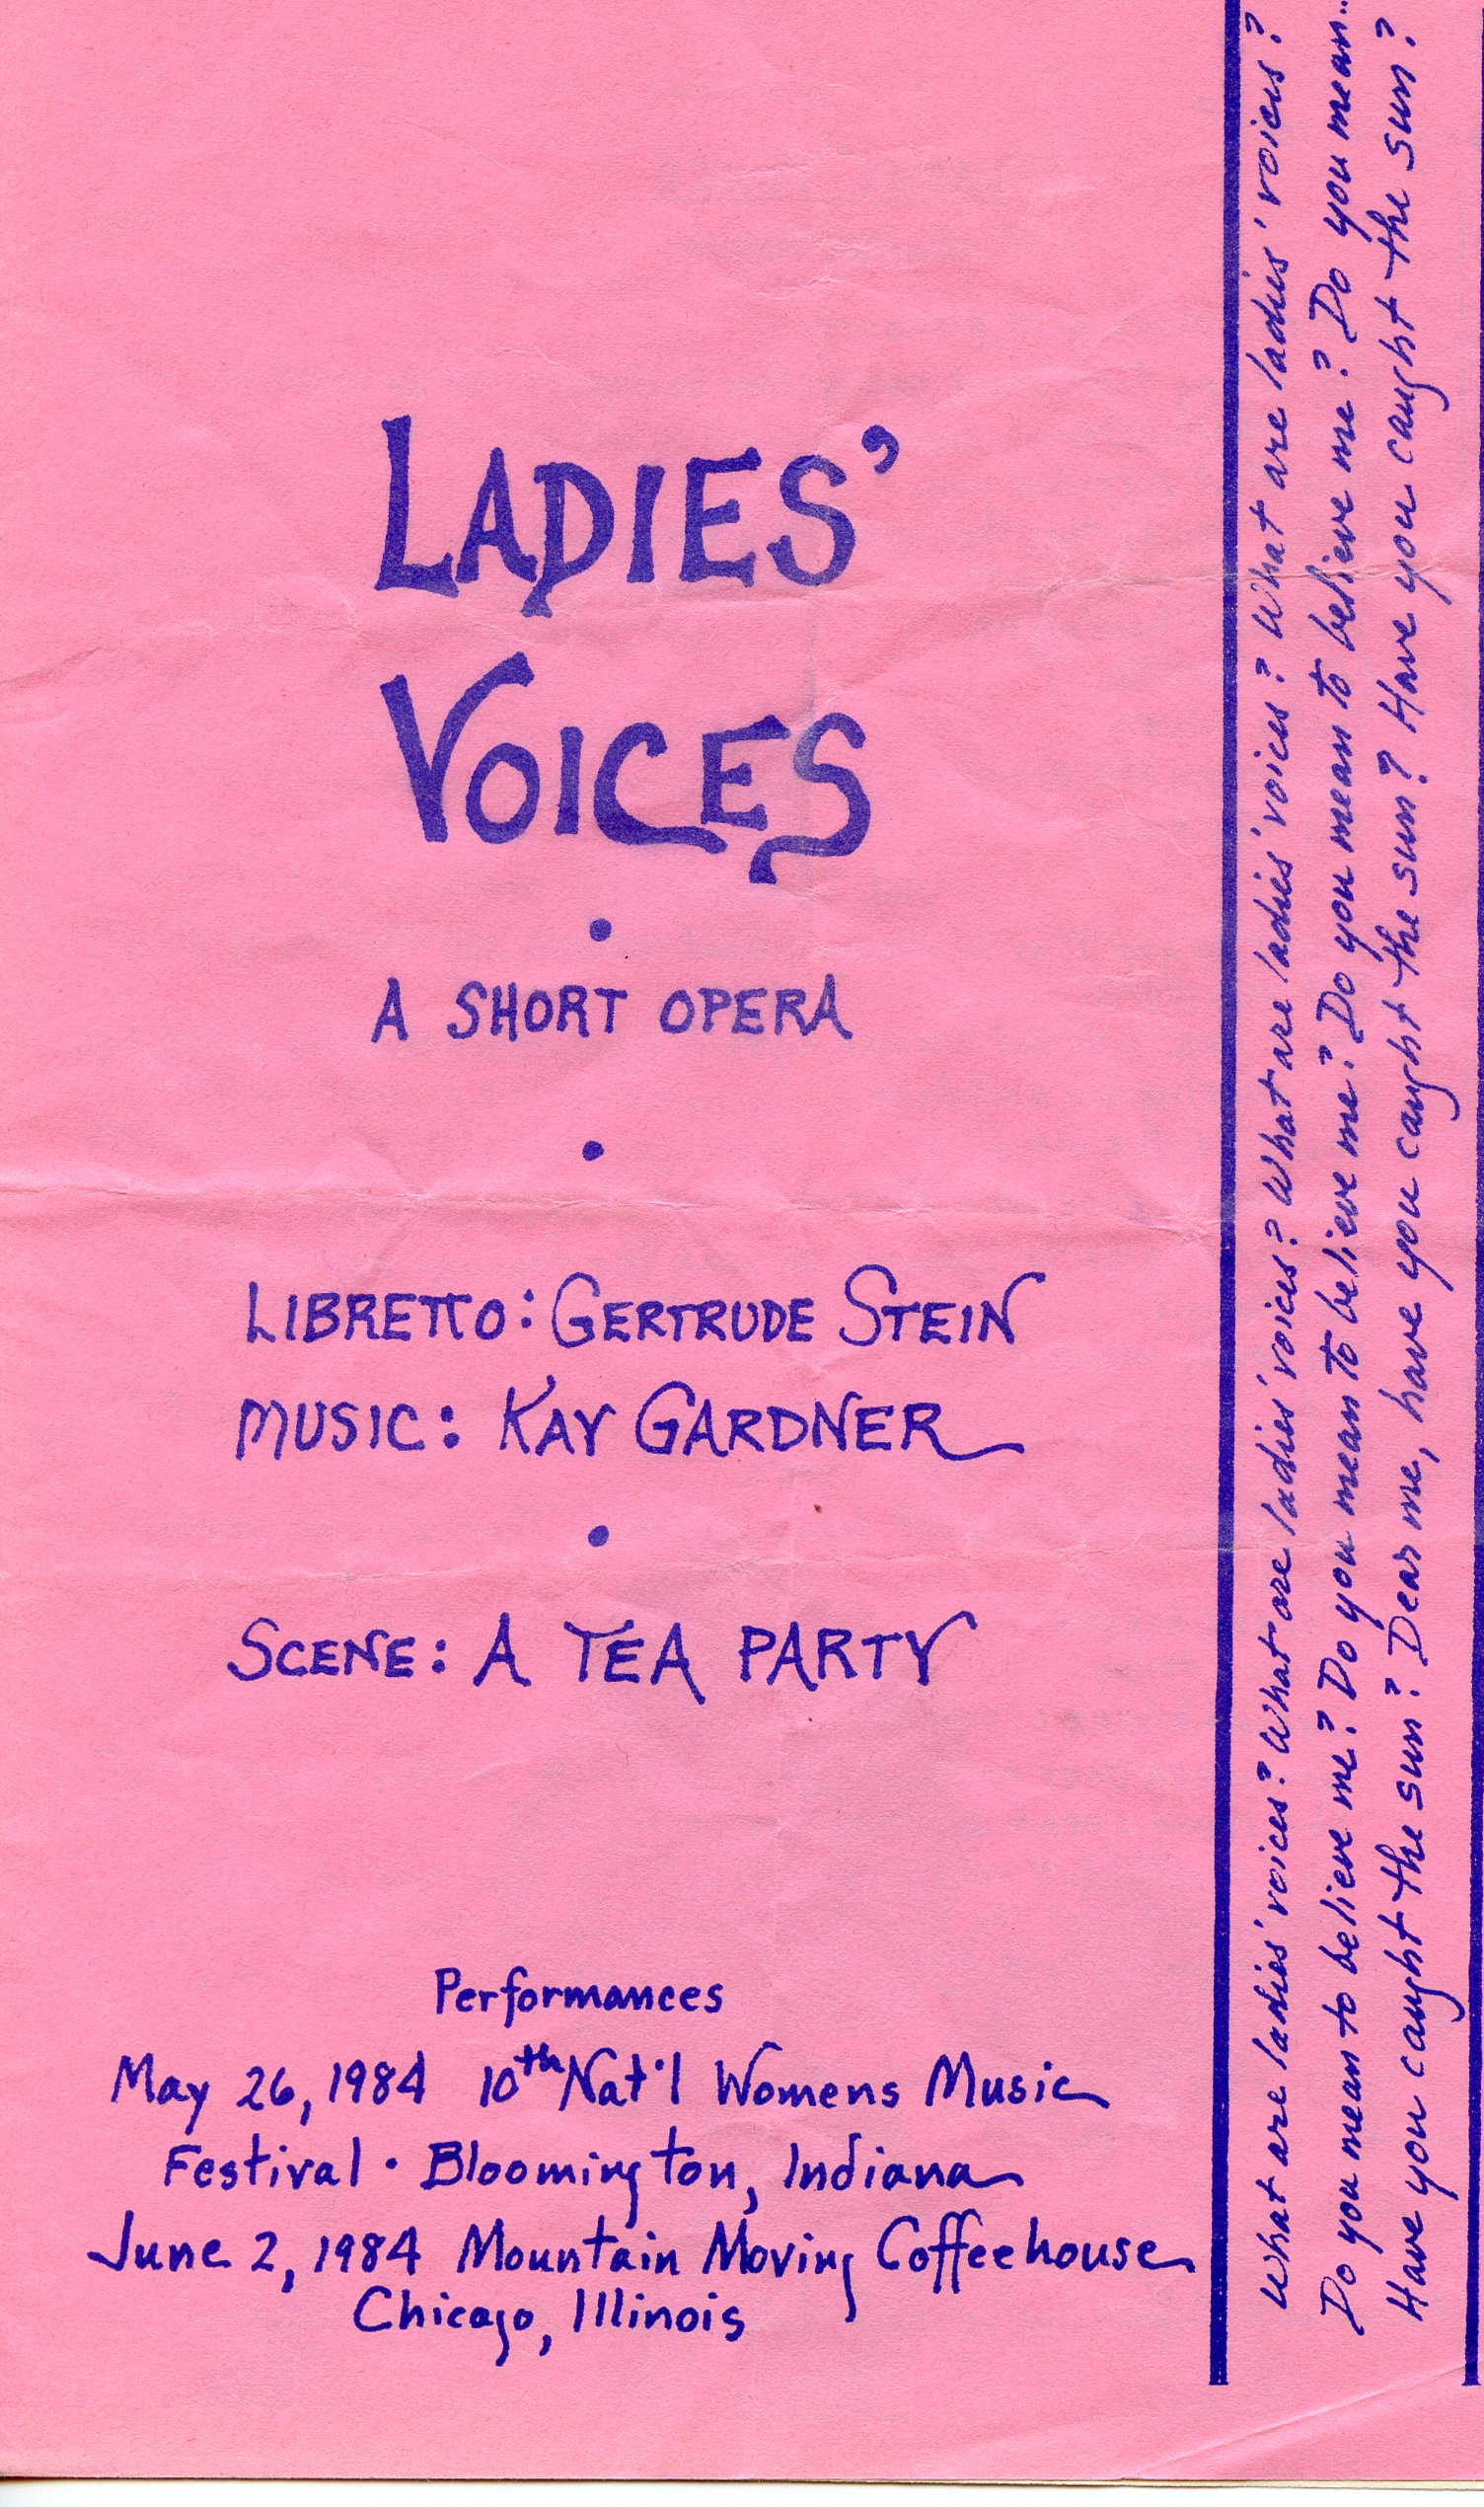 LADIES'
VOICES
•
A SHORT OPERA
•
LIBRETTO: GERTRUDE STEIN
MUSIC: KAY GARDNER
•
SCENE: A TEA PARTY
Performances
May 26, 1984 10th Nat'l Womens Music
Festival • Bloomington, Indiana
June 2, 1984 Mountain Moving Coffeehouse
Chicago, Illinois
What are ladies' voices? What are ladies' voices? What are ladies' voices? What are ladies' voices?
Do you mean to believe me? Do you mean to believe me? Do you mean to believe me? Do you mean...
Have you caught the sun? Dear me, have you caught the sun? Have you caught the sun?